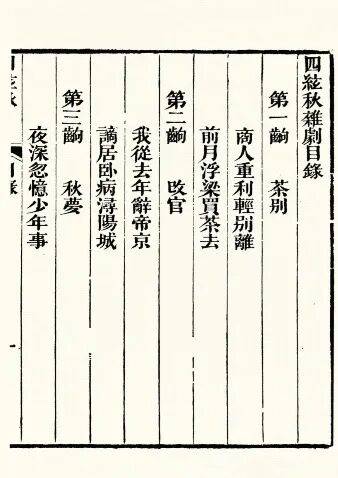 四絃秋雜劇目錄
第一齣 茶別
商人重利輕別離
前月浮梁買茶去
第二齣 改官
我從去年辭帝京
謫居卧病潯陽城
第三齣 秋夢
夜深忽憶少年事